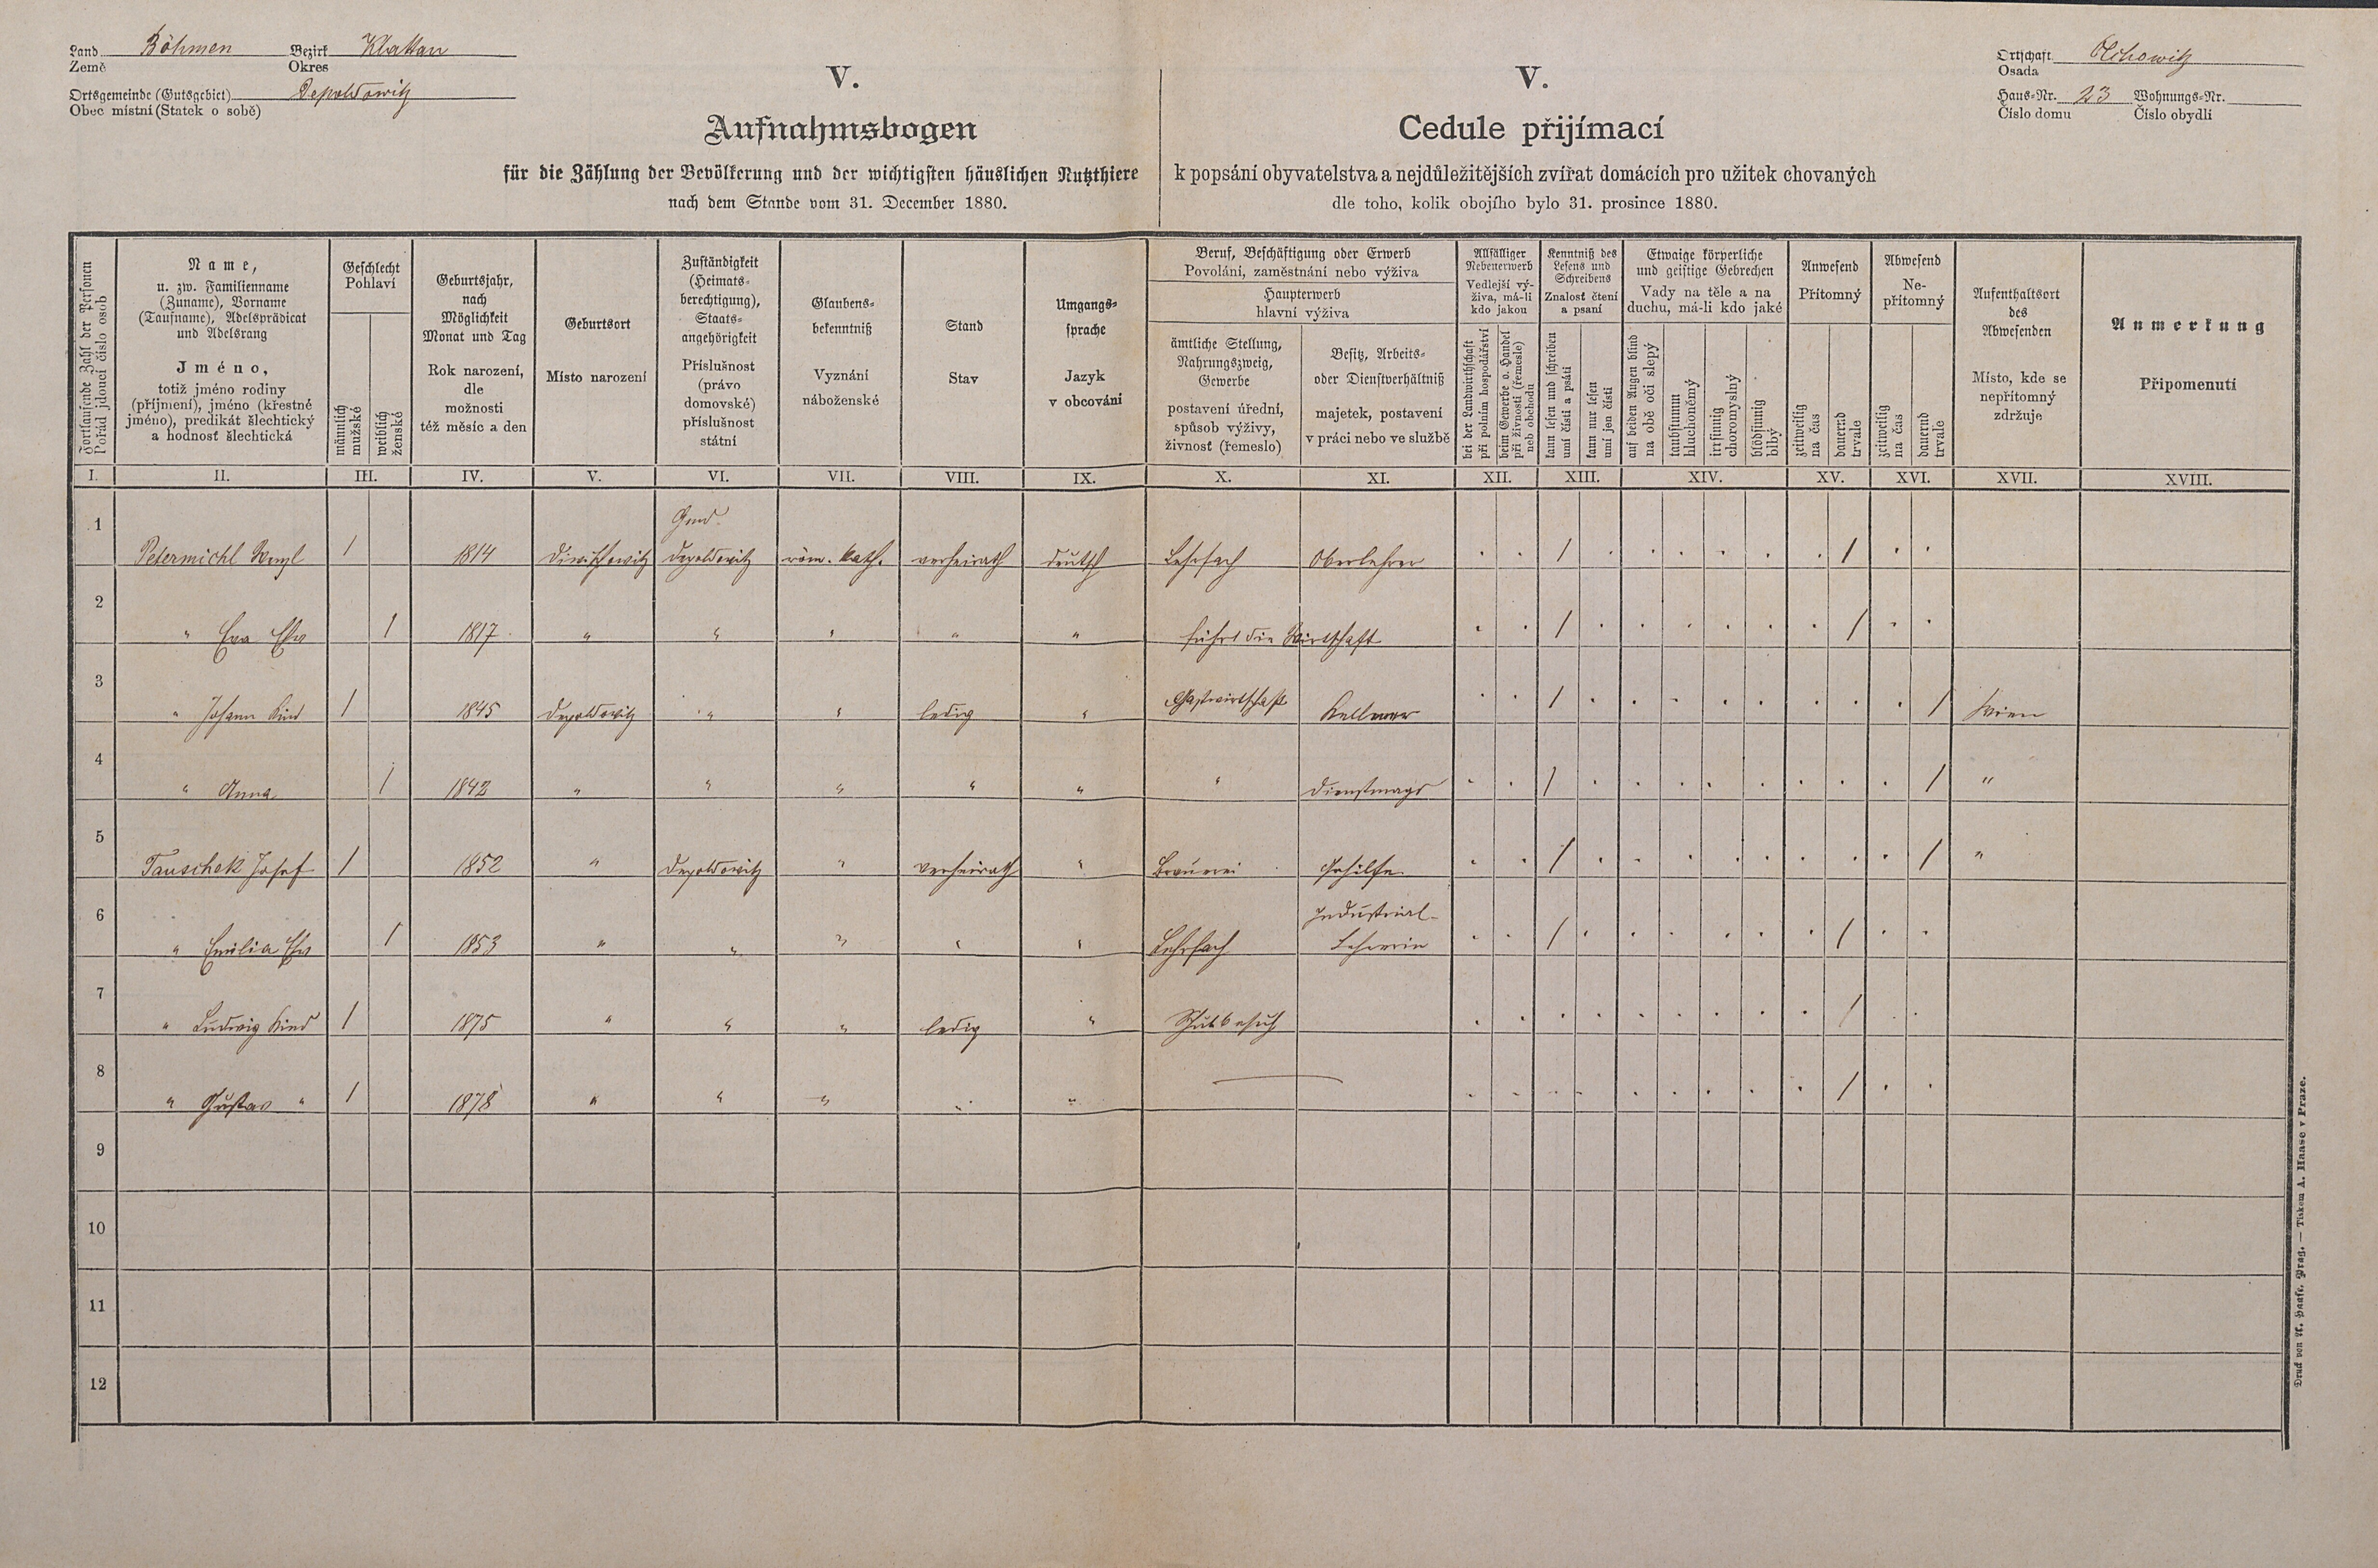 Land Böhmen Bezirk Klattau
Země Okres
Ortsgemeinde (Gutsgebiet) Depoldowitz
Obec místní (Statek o sobě)
V.
Aufnahmsbogen
für die Zählung der Bevölkerung und der wichtigsten häuslichen Nutzthiere
nach dem Stande vom 31. December 1880.
V.
Cedule přijímací
k popsání obyvatelstva a nejdůležitějších zvířat domácích pro užitek chovaných
dle toho, kolik obojího bylo 31. prosince 1880.
Ortschaft
Osada
Haus-Nr. 23 Wohnungs-Nr.
Číslo domu Číslo obydlí
Fortlaufende Zahl der Personen
Pořád jdoucí číslo osob
Name,
u. zw. Familienname
(Zuname), Vorname
(Taufname), Adelsprädicat
und Adelsrang
Jméno,
totiž jméno rodiny
(příjmení), jméno (křestné
jméno), predikát šlechtický
a hodnost šlechtická
Geschlecht
Pohlaví
männlich
mužské
weiblich
ženské
Geburtsjahr,
nach
Möglichkeit
Monat und Tag
Rok narození,
dle
možnosti
též měsíc a den
Geburtsort
Místo narození
Zuständigkeit
(Heimats-
berechtigung),
Staats-
angehörigkeit
Příslušnost
(právo
domovské)
příslušnost
státní
Glaubens-
bekenntniß
Vyznání
náboženské
Stand
Stav
Umgangs-
sprache
Jazyk
v obcování
Beruf, Beschäftigung oder Erwerb
Povolání, zaměstnání nebo výživa
Haupterwerb
hlavní výživa
ämtliche Stellung,
Nahrungszweig,
Gewerbe
postavení úřední,
spůsob výživy,
živnost (řemeslo)
Besitz, Arbeits-
oder Dienstverhältniß
majetek, postavení
v práci nebo ve službě
Allfälliger
Nebenerwerb
Vedlejší vý-
živa, má-li
kdo jakou
bei der Landwirthschaft
při polním hospodářství
beim Gewerbe o. Handel
při živnosti (řemesle)
neb obchodu
Kenntniß des
Lesens und
Schreibens
Znalost čtení
a psaní
kann lesen und schreiben
umí čísti a psáti
kann nur lesen
umí jen čísti
Etwaige körperliche
und geistige Gebrechen
Vady na těle a na
duchu, má-li kdo jaké
auf beiden Augen blind
na obě oči slepý
taubstumm
hluchoněmý
irrsinnig
choromyslný
blödsinnig
blbý
Anwesend
Přítomný
zeitweilig
na čas
dauernd
trvale
Abwesend
Ne-
přítomný
zeitweilig
na čas
dauernd
trvale
Aufenthaltsort
des
Abwesenden
Místo, kde se
nepřítomný
zdržuje
Anmerkung
Připomenutí
I. II. III. IV. V. VI. VII. VIII. IX. X. XI. XII. XIII. XIV. XV. XVI. XVII. XVIII.
Gmd.
1 Petermichl Wenzl / 1814 Diwischowitz Depoldowitz röm. kath. verheirath deutsch Lehrfach Oberlehrer . . / . . . . . . / . .
2 " Eva / 1817 " " " " " führt die Wirthschaft . . / . . . . . . / . .
3 " Johann Kind / 1845 Depoldowitz " " ledig " Gastwirthschaft Kellner . . / . . . . . . . . / Wien
4 " Anna / 1842 " " " " " " Dienstmagd . . / . . . . . . . . / "
5 Tauschek Josef / 1852 " Depoldowitz " verheirath " Brauerei Gehilfe . . / . . . . . . . . / "
Industrial-
6 " Emilia / 1853 " " " " " Lehrfach Lehrerin . . / . . . . . . / . .
7 " Ludwig Kind / 1875 " " " ledig " Schulbesuch . . . . . . . . . / . .
8 " Gustav " / 1878 " " " " " — . . . . . . . . . / . .
9
10
11
12
Druck von A. Haase, Prag. — Tiskem A. Haase v Praze.